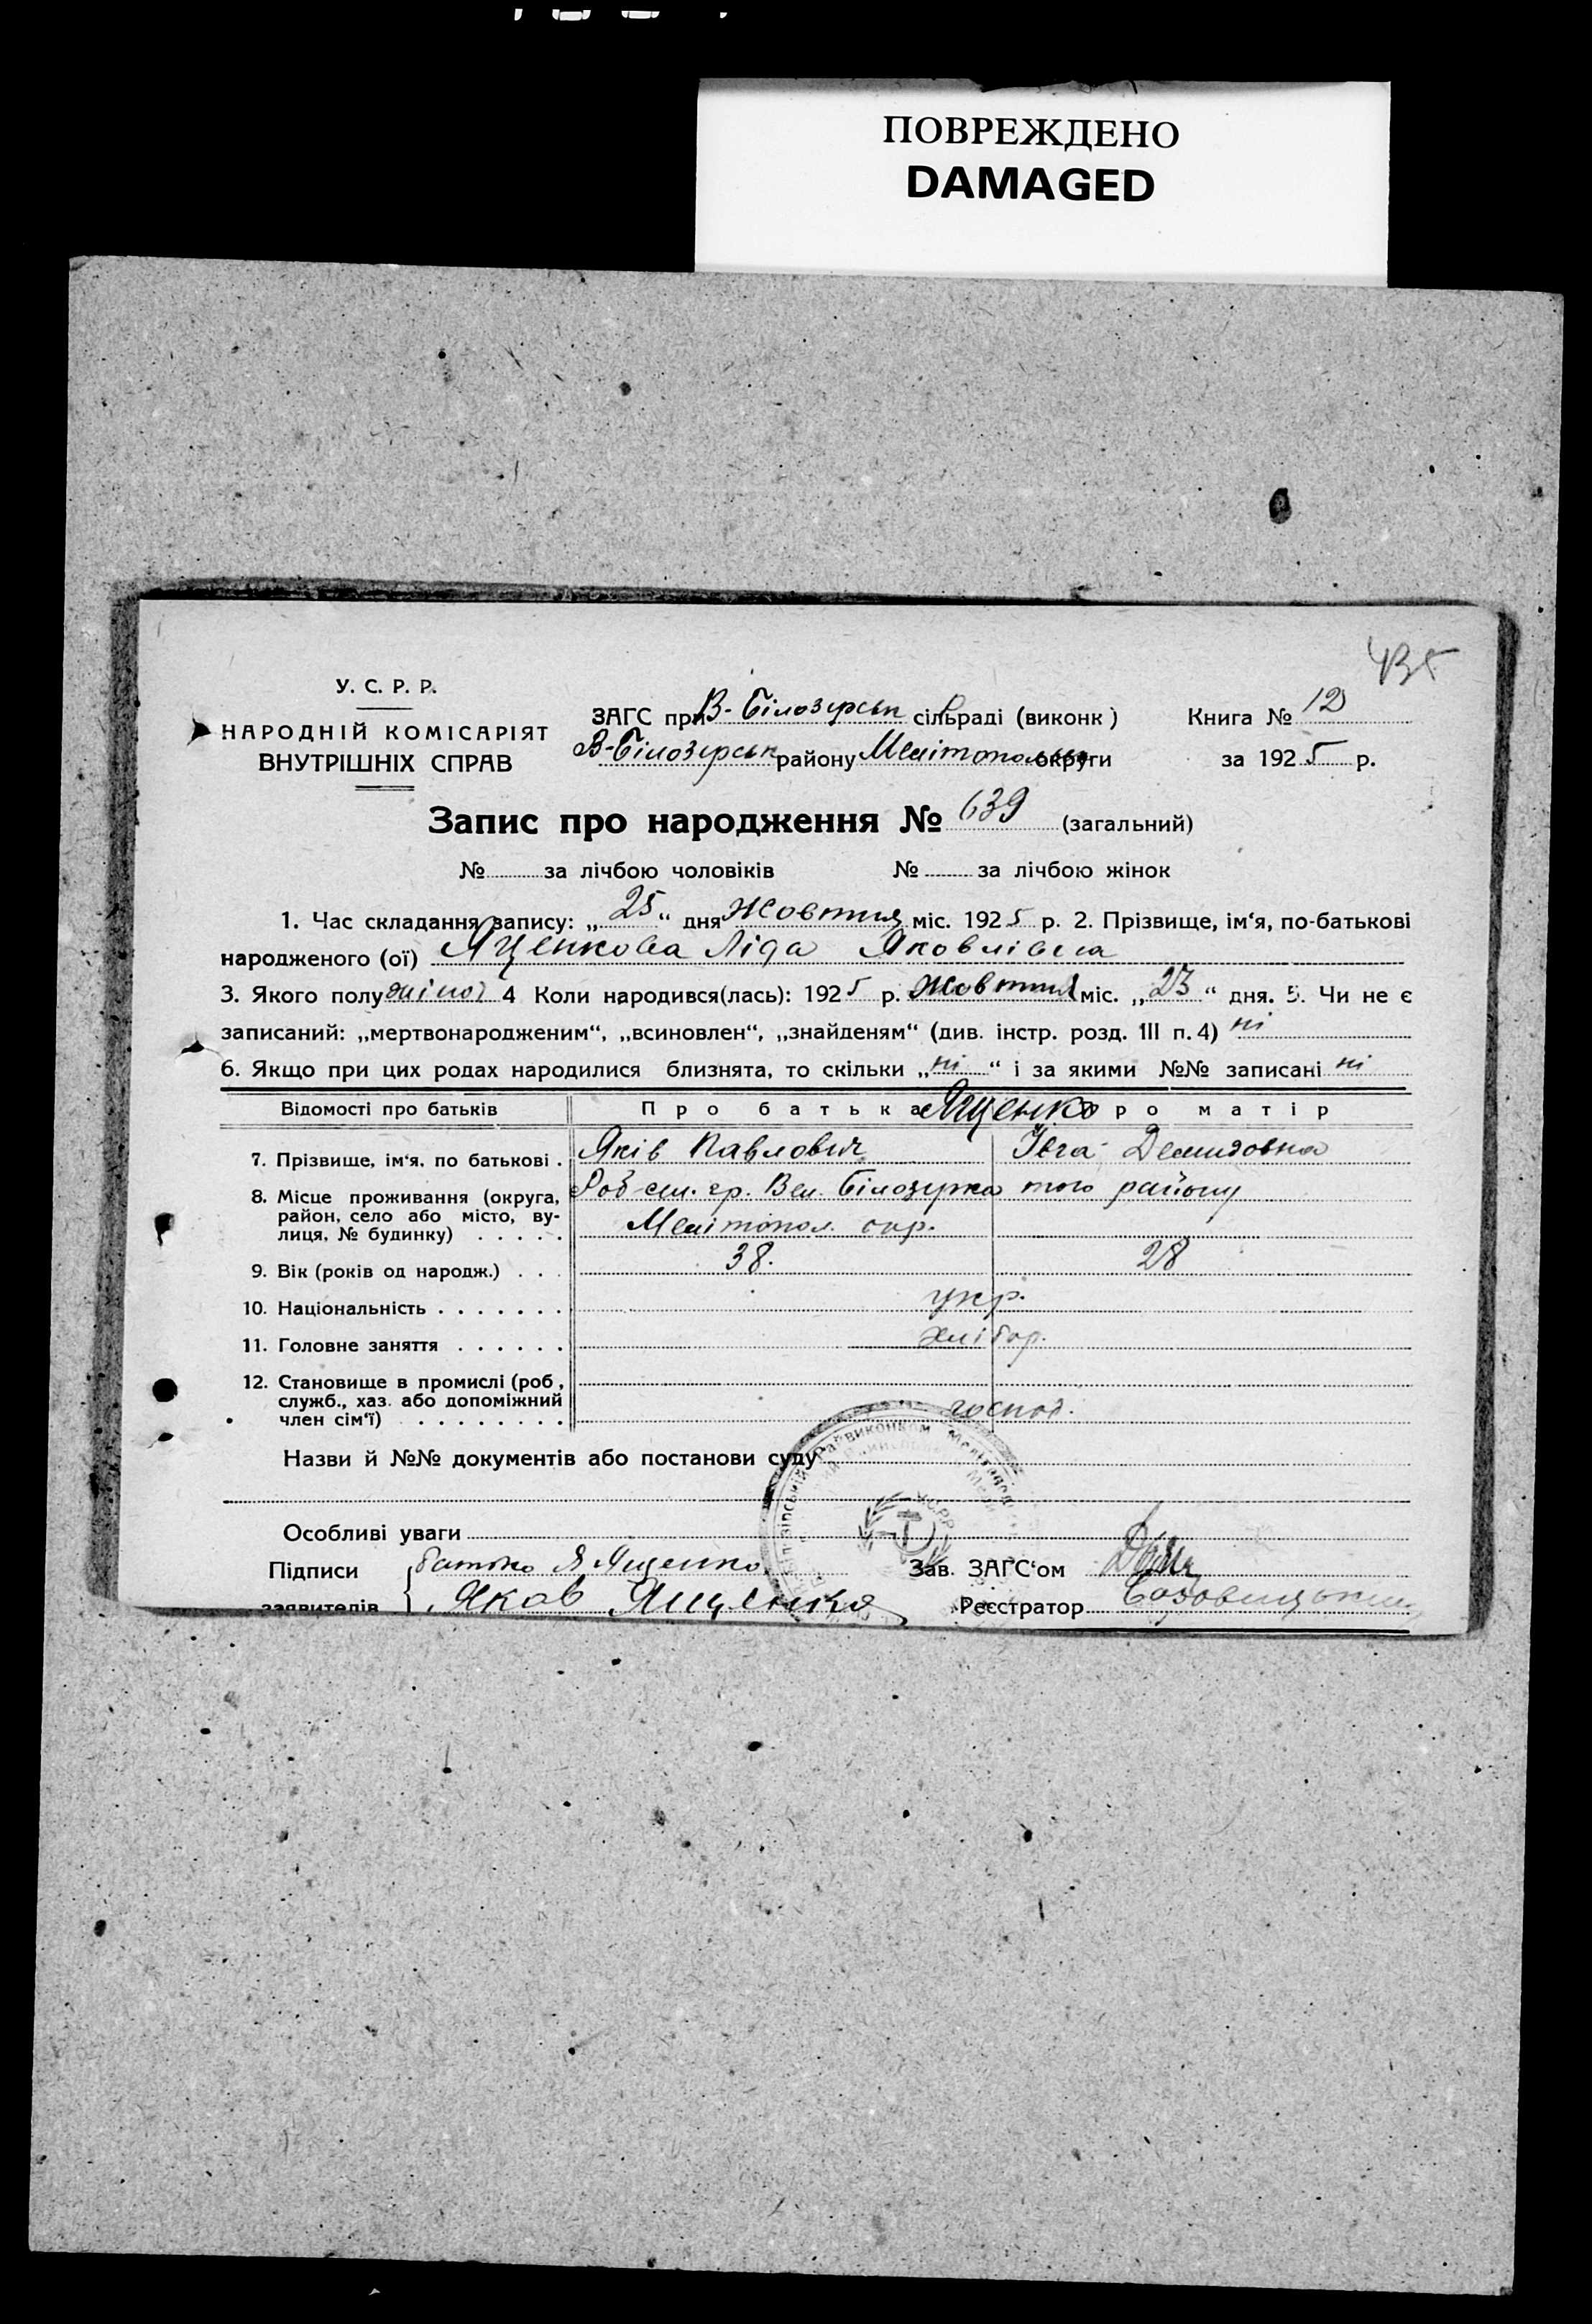 ПОВРЕЖДЕНО
DAMAGED
435
У. С. Р. Р.
НАРОДНІЙ КОМІСАРІЯТ
ВНУТРІШНІХ СПРАВ
ЗАГС при В-Білозерськ сільраді (виконк) Книга № 12
В-Білозерськ району Мелітопольськ округи за 1925 р.
Запис про народження № 639 (загальний)
№ за лічбою чоловіків № за лічбою жінок
1. Час складання запису: „25“ дня Жовтня міс. 1925 р. 2. Прізвище, ім'я, по-батькові
народженого (ої) Яценкова Ліда Яковлівна
3. Якого полу жіноч 4 Коли народився(лась): 1925 р. Жовтня міс. „23“ дня. 5. Чи не є
записаний: „мертвонародженим“, „всиновлен“, „знайденям“ (див. інстр. розд. III п. 4) ні
6. Якщо при цих родах народилися близнята, то скільки „ні“ і за якими №№ записані ні
Відомості про батьків Про батька Яценко Про матір
7. Прізвище, ім'я, по батькові . Яків Павлович Івга Демидовна
8. Місце проживання (округа, район, село або місто, вулиця, № будинку) . . . . . гр. Вел. Білозерка того району
Мелітопол. окр.
9. Вік (років од народж.) . . . 38. 28
10. Національність . . . . . . . укр.
11. Головне заняття . . . . . . хлібор.
12. Становище в промислі (роб, служб., хаз. або допоміжний член сім'ї) . . . . . . . . господ.
Назви й №№ документів або постанови суду
Особливі уваги
Підписи батько Я Яценко Зав. ЗАГС'ом
заявителів Яков Яценко Реєстратор